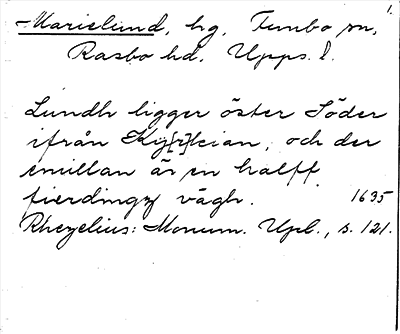 1.
Marielund, hg, Funbo sn,
Rasbo hd, Upps. l.
Lundh ligger öster Söder
ifrån Ky[r]kian, och der
emillan är en halff
fierdingz vägh. 1635
Rhezelius: Monum. Upl., s. 121.